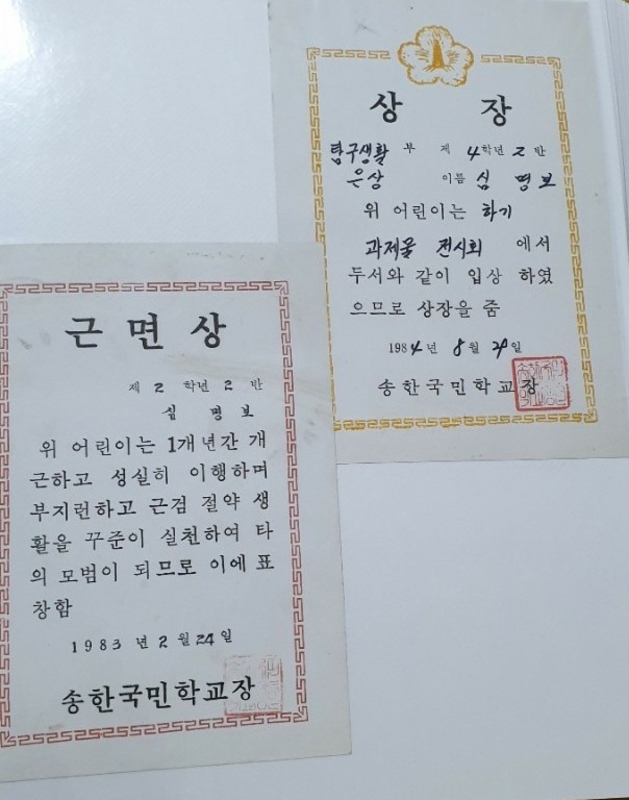 상 장
탐구생활 부 제 4학년 2 반
은상 이름 심 명 보
위 어린이는 하기
과제물 전시회 에서
두서와 같이 입상 하였
으므로 상장을 줌
1984년 8월 29일
송한국민학교장
근 면 상
제 2 학년 2 반
심 명 보
위 어린이는 1개년간 개
근하고 성실히 이행하며
부지런하고 근검 절약 생
활을 꾸준이 실천하여 타
의 모범이 되므로 이에 표
창함
1983 년 2 월 24 일
송한국민학교장